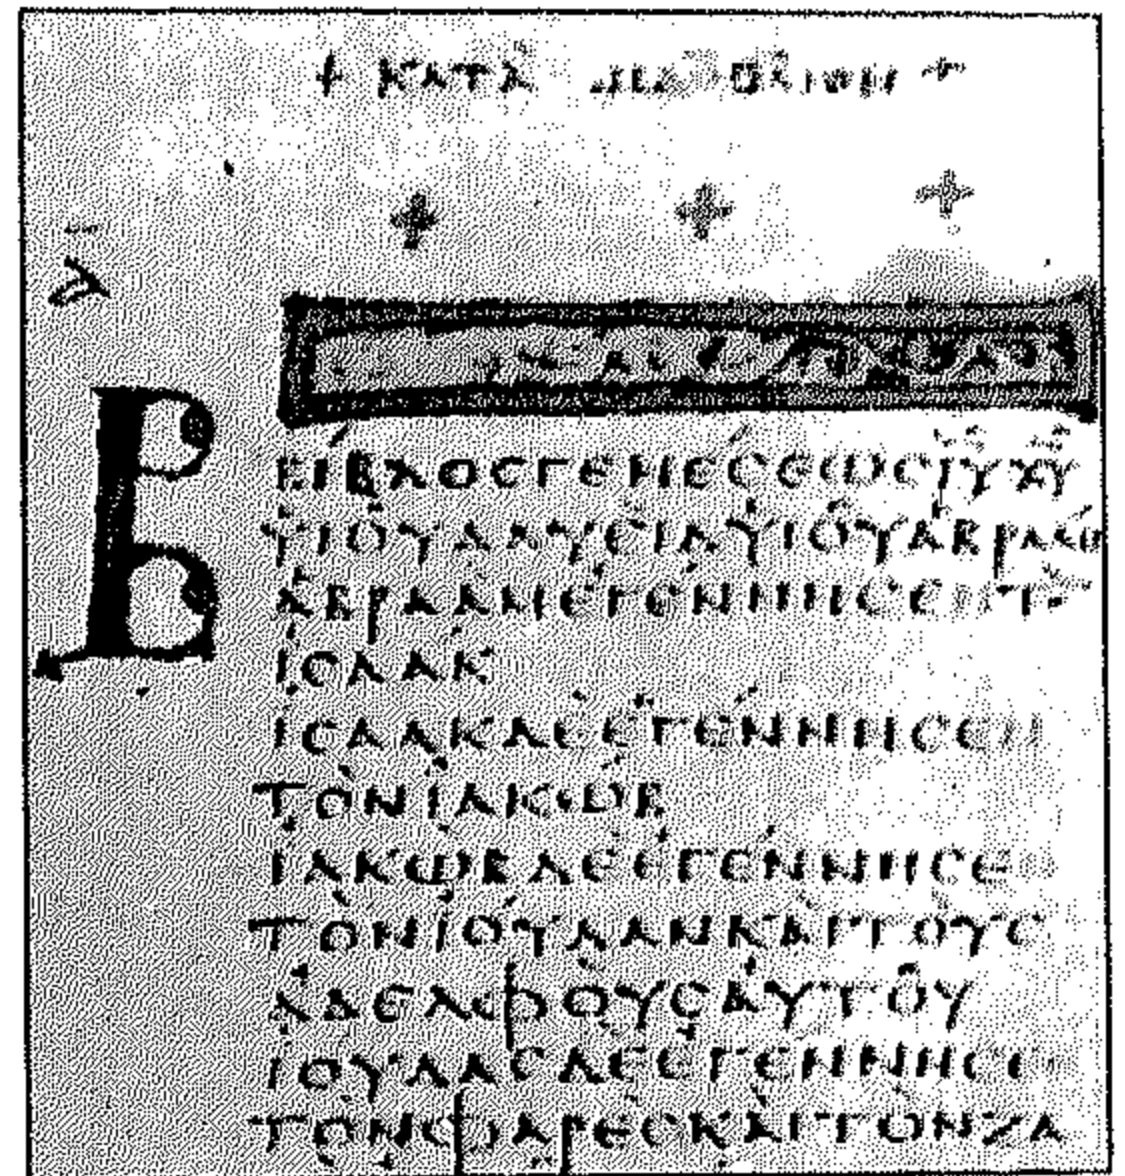 + ΚΑΤΑ ΜΑΘΘΑΙΟΝ +
Α
Β
ΒΙΒΛΟΣ ΓΕΝΕΣΕΩΣ ΙΥ ΧΥ
ΥΙΟΥ ΔΑΥΕΙΔ ΥΙΟΥ ΑΒΡΑΑΜ
ΑΒΡΑΑΜ ΕΓΕΝΝΗΣΕΝ ΤΟΝ
ΙΣΑΑΚ
ΙΣΑΑΚ ΔΕ ΕΓΕΝΝΗΣΕΝ
ΤΟΝ ΙΑΚΩΒ
ΙΑΚΩΒ ΔΕ ΕΓΕΝΝΗΣΕΝ
ΤΟΝ ΙΟΥΔΑΝ ΚΑΙ ΤΟΥΣ
ΑΔΕΛΦΟΥΣ ΑΥΤΟΥ
ΙΟΥΔΑΣ ΔΕ ΕΓΕΝΝΗΣΕ
ΤΟΝ ΦΑΡΕΣ ΚΑΙ ΤΟΝ ΖΑ